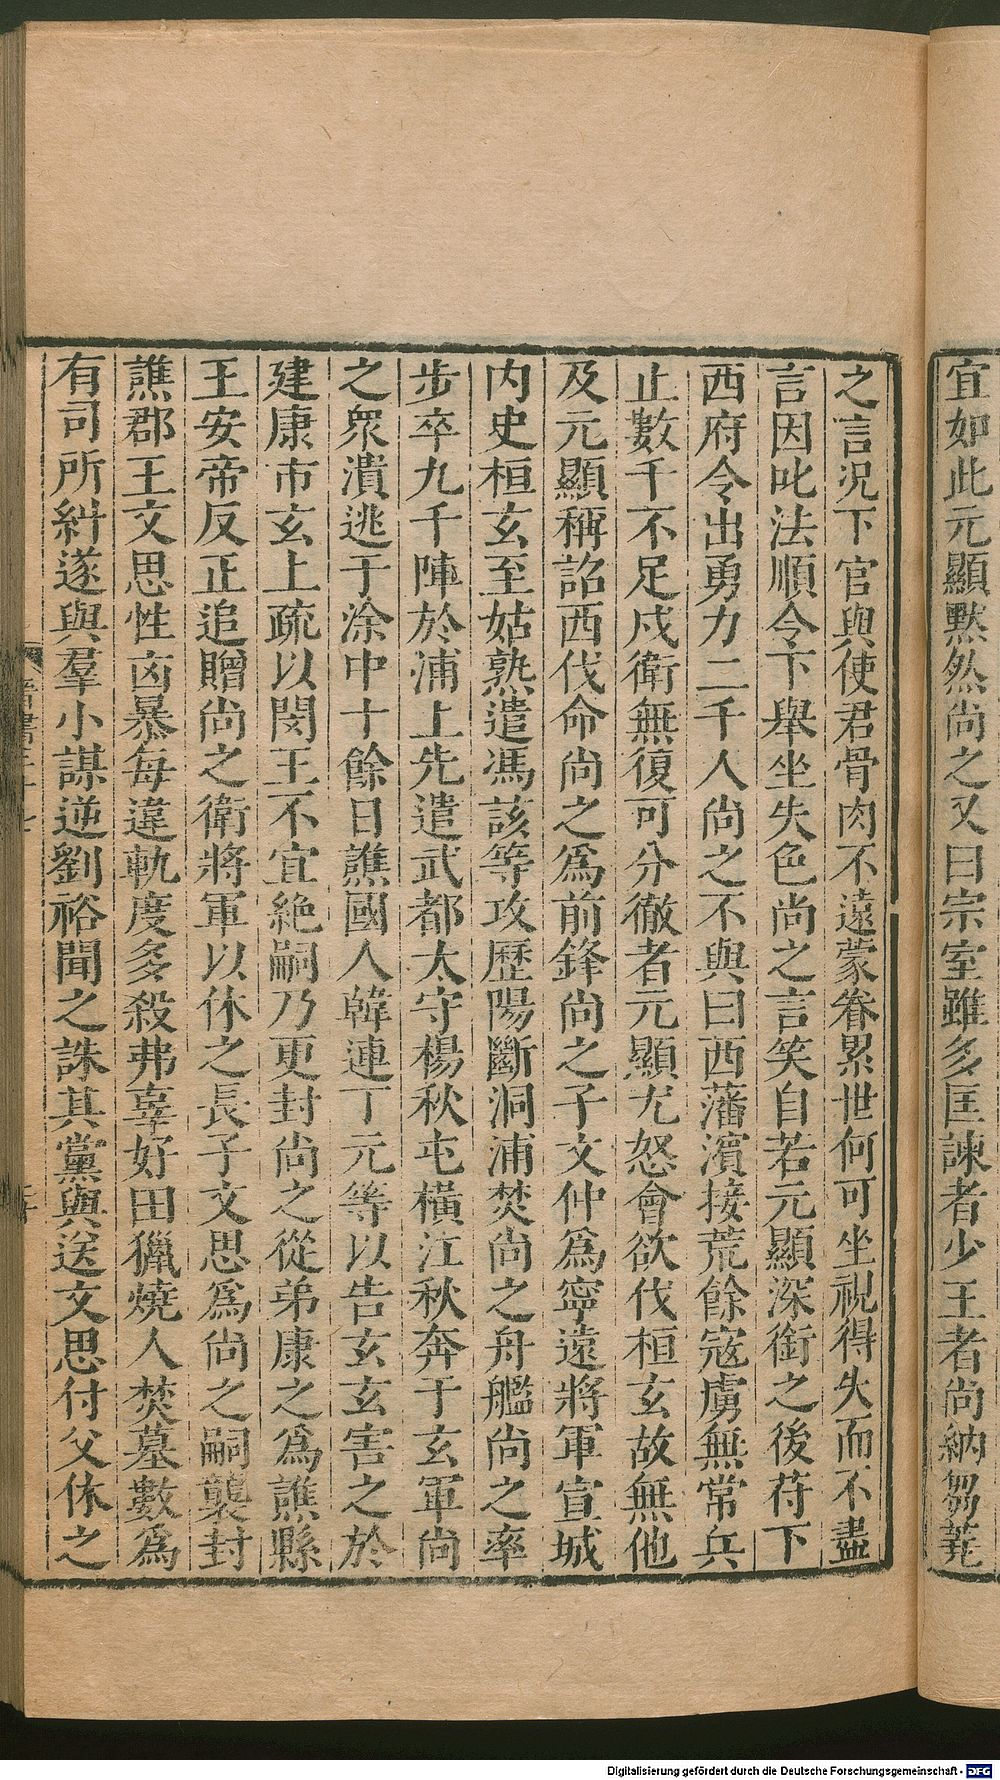 宜如此元顯默然尚之又曰宗室雖多匡諫者少王者尚納芻蕘
之言況下官與使君骨肉不遠蒙眷累世何可坐視得失而不盡
言因叱法順令下舉坐失色尚之言笑自若元顯深銜之後苻下
西府令出勇力二千人尚之不與曰西藩濱接荒餘寇虜無常兵
止數千不足戍衛無復可分徹者元顯尤怒會欲伐桓玄故無他
及元顯稱詔西伐命尚之爲前鋒尚之子文仲爲寧遠將軍宣城
内史桓玄至姑熟遣馮該等攻歷陽斷洞浦焚尚之舟艦尚之率
步卒九千陣於浦上先遣武都太守楊秋屯橫江秋奔于玄軍尚
之衆潰逃于涂中十餘日譙國人韓連丁元等以告玄玄害之於
建康市玄上疏以閔王不宜絶嗣乃更封尚之從弟康之爲譙縣
王安帝反正追贈尚之衛將軍以休之長子文思爲尚之嗣襲封
譙郡王文思性凶暴每違軌度多殺弗辜好田獵燒人焚墓數爲
有司所糾遂與羣小謀逆劉裕聞之誅其黨與送文思付父休之
晉書三十七
Digitalisierung gefördert durch die Deutsche Forschungsgemeinschaft - DFG